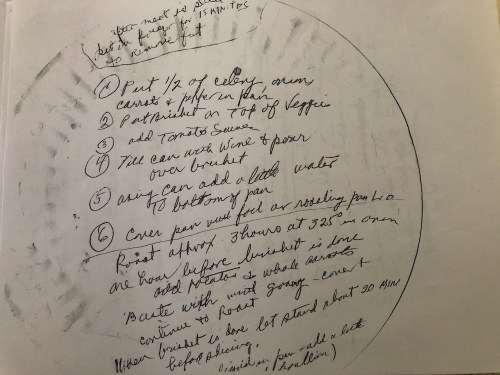 after meat is
put in freezer for 15 minutes
to remove fat
① Put 1/2 of celery onion
carrots & pepper in pan
② Put Brisket on Top of Veggie
③ add Tomato Sauce
④ Fill can with Wine & pour
over brisket
⑤ using can add a little water
To bottom of pan
⑥ Cover pan with foil or roasting pan lid
Roast approx. 3 hours at 325° in oven
one hour before brisket is done
add potatoes & whole carrots
Baste with gravy - cover &
continue to Roast
When brisket is done let stand about 20 Min
before slicing.
liquid in pan - add a little
bouillon)